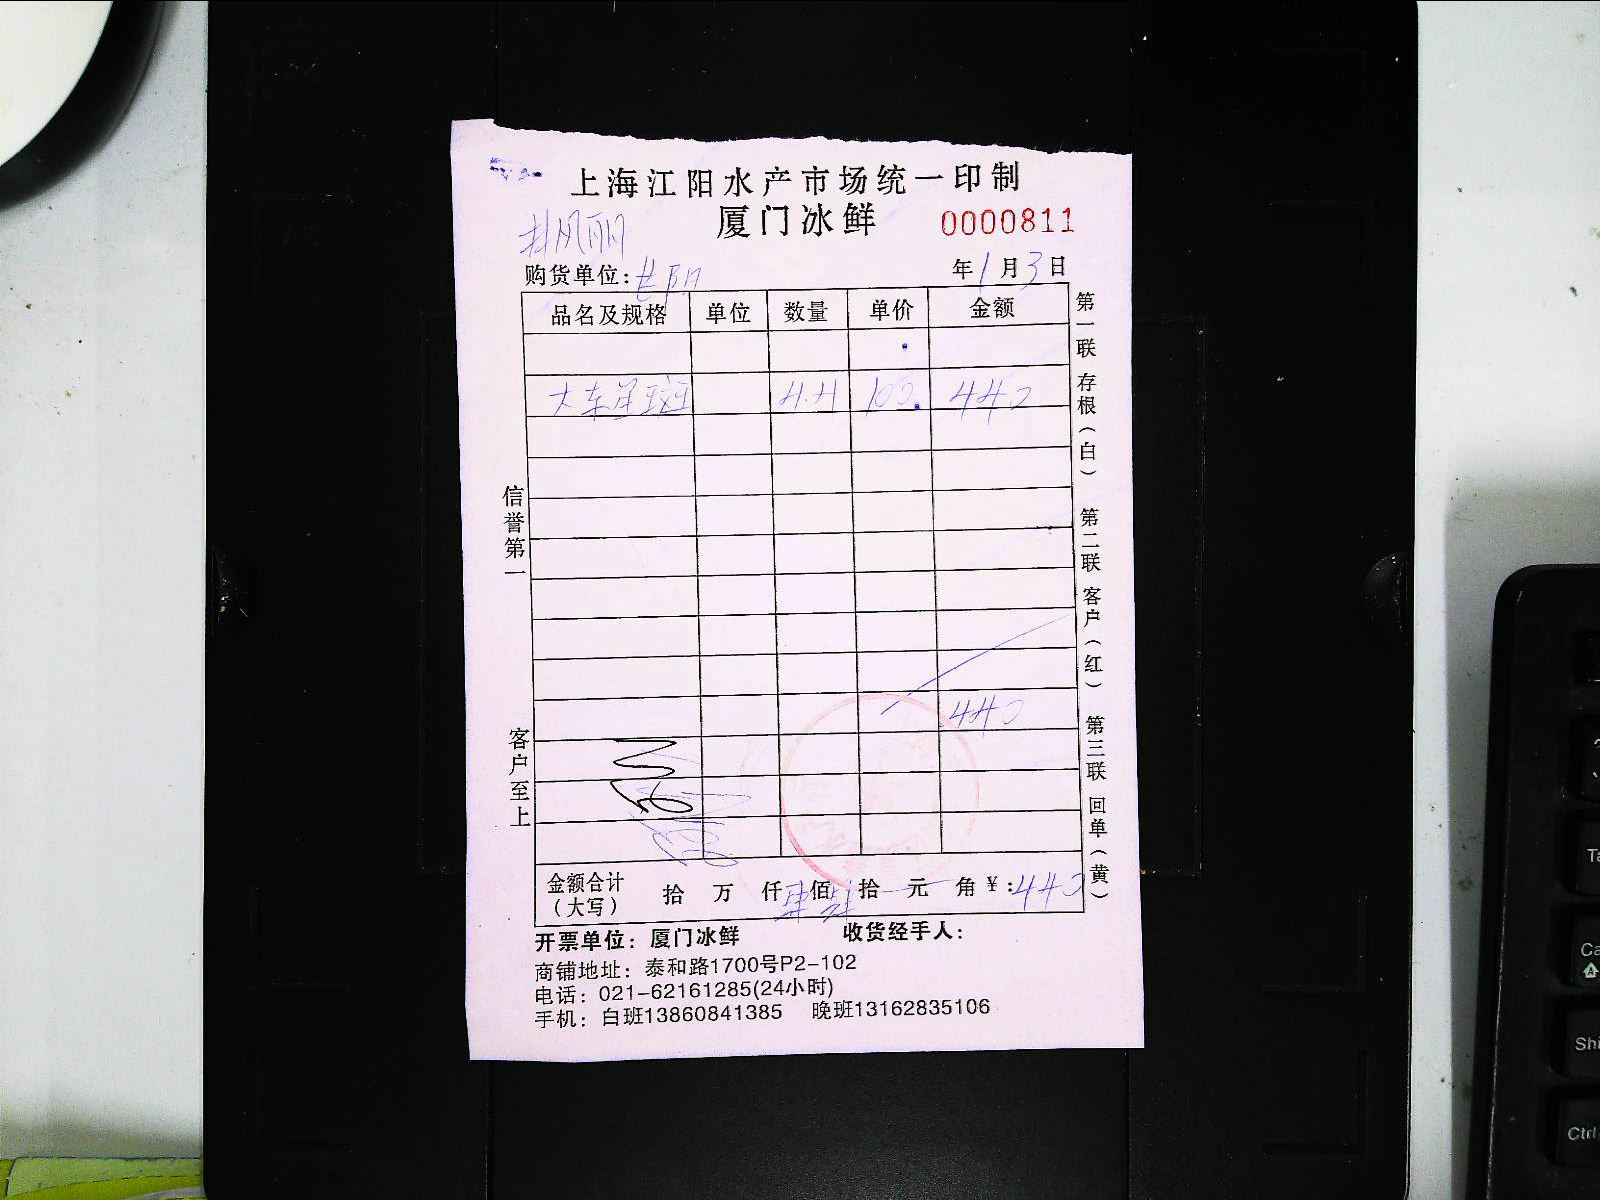 上海江阳水产市场统一印制
厦门冰鲜 0000811
购货单位: 年1月3日
品名及规格 单位 数量 单价 金额
大东星斑 4.4 100. 440
440
金额合计（大写） 拾 万 仟 肆佰 肆拾 元 角 ¥:440
开票单位：厦门冰鲜 收货经手人：
商铺地址：泰和路1700号P2-102
电话：021-62161285(24小时)
手机：白班13860841385 晚班13162835106
信誉第一
客户至上
第一联 存根（白） 第二联 客户（红） 第三联 回单（黄）
Ctrl